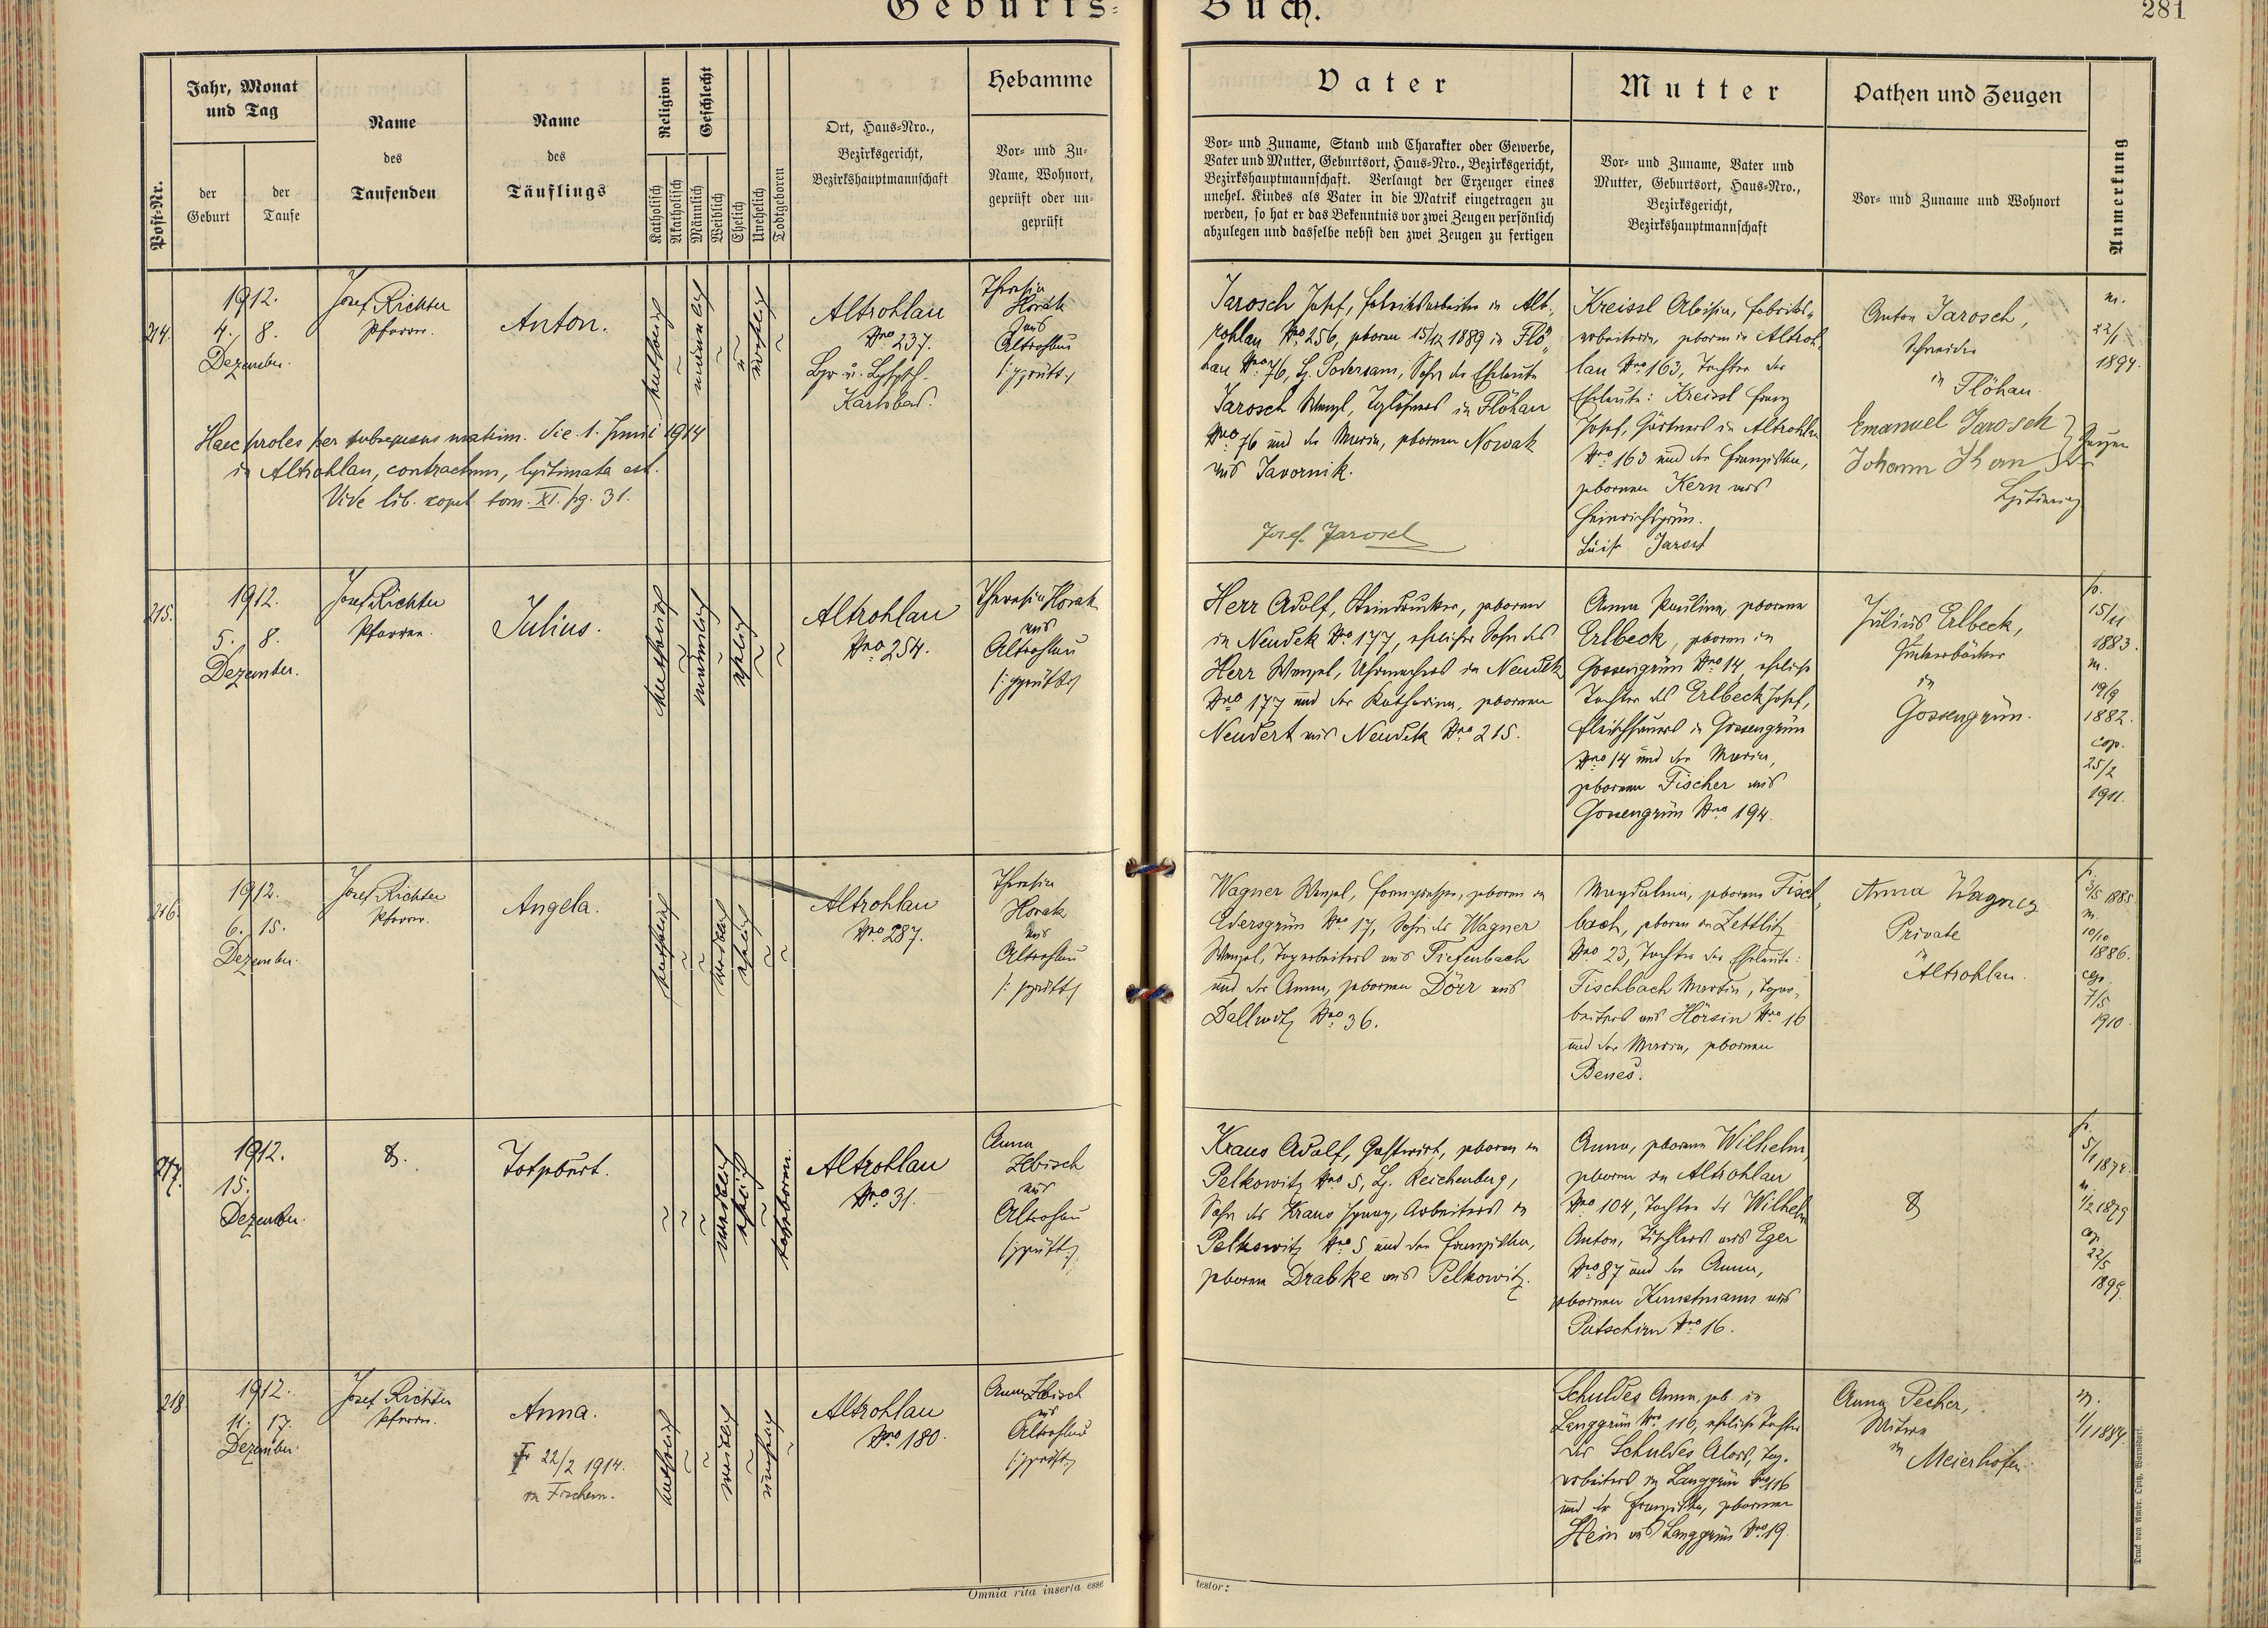 Geburts-
Buch.
281
Post-Nr.
Jahr, Monat
und Tag
der
Geburt
der
Taufe
Name
des
Taufenden
Name
des
Täuflings
Religion
Katholisch
Akatholisch
Geschlecht
Männlich
Weiblich
Ehelich
Unehelich
Todtgeboren
Ort, Haus-Nro.,
Bezirksgericht,
Bezirkshauptmannschaft
Hebamme
Vor- und Zu-
Name, Wohnort,
geprüft oder un-
geprüft
Vater
Vor- und Zuname, Stand und Charakter oder Gewerbe,
Vater und Mutter, Geburtsort, Haus-Nro., Bezirksgericht,
Bezirkshauptmannschaft. Verlangt der Erzeuger eines
unehel. Kindes als Vater in die Matrik eingetragen zu
werden, so hat er das Bekenntnis vor zwei Zeugen persönlich
abzulegen und dasselbe nebst den zwei Zeugen zu fertigen
Mutter
Vor- und Zuname, Vater und
Mutter, Geburtsort, Haus-Nro.,
Bezirksgericht,
Bezirkshauptmannschaft
Pathen und Zeugen
Vor- und Zuname und Wohnort
Anmerkung
214.
1912.
4. 8.
Dezember.
Josef Richter
Pfarrer.
Anton.
katholisch
~
männlich
~
~
unehelich
~
Altrohlau
Nro 237.
Karlsbad.
Theresia
Horak
aus
Altrohlau
/: geprüft :/
Haec proles per subsequens matrim. die 1. Junii 1914
in Altrohlau, contractum, legitimata est.
Vide lib. copul. tom. XI. pg. 31.
Jarosch Josef, Fabriksarbeiter in Alt-
rohlau Nro 256, geboren 15/12 1889 in Flö-
hau Nro 76, Bz. Podersam, Sohn der Eheleute
Jarosch Wenzl, Taglöhners in Flöhau
Nro 76 und der Maria, geborenen Nowak
aus Javornik.
Josef Jarosch
Kreissl Aloisia, Fabriks-
arbeiterin, geboren in Altroh-
lau Nro 163, Tochter der
Eheleute: Kreissl Franz
Josef, Gärtners in Altrohlau
Nro 163 und der Franziska,
geborenen Kern aus
Heinrichsgrün.
Luise Jarosch
Anton Jarosch,
Schneider
in Flöhau.
Emanuel Jarosch
Johann
Zeugen
der
m.
22/1
1894.
215.
1912.
5. 8.
Dezember.
Josef Richter
Pfarrer.
Julius.
katholisch
~
männlich
~
ehelich
~
~
Altrohlau
Nro 254.
Theresia Horak
aus
Altrohlau
/: geprüft :/
Herr Adolf, Steindrucker, geboren
in Neudek Nro 177, ehelicher Sohn des
Herr Wenzel, Uhrmachers in Neudek
Nro 177 und der Katharina, geborenen
Neudert aus Neudek Nro 215.
Anna Paulina, geborene
Erlbeck, geboren in
Gossengrün Nro 14, eheliche
Tochter des Erlbeck Josef,
Fleischhauers in Gossengrün
Nro 14 und der Maria,
geborenen Fischer aus
Gossengrün Nro 194.
Julius Erlbeck,
Zuckerbäcker
in
Gossengrün.
p.
15/11
1883.
m.
19/9
1882.
cop.
25/2
1911.
216.
1912.
6. 15.
Dezember.
Josef Richter
Pfarrer.
Angela.
katholisch
~
~
weiblich
ehelich
~
~
Altrohlau
Nro 287.
Theresia
Horak
aus
Altrohlau
/: geprüft :/
Wagner Wenzel, Formgießer, geboren in
Edersgrün Nro 17, Sohn des Wagner
Wenzel, Tagarbeiters aus Tiefenbach
und der Anna, geborenen Dörr aus
Dallwitz Nro 36.
Magdalena, geborene Fisch-
bach, geboren in Zettlitz
Nro 23, Tochter der Eheleute:
Fischbach Martin, Tagar-
beiters aus Hörsin Nro 16
und der Maria, geborenen
Beneš.
Anna Wagner
Private
in
Altrohlau.
p.
3/5 1885
m.
10/10
1886.
cop.
7/5
1910.
217.
1912.
15.
Dezember.
Totgeburt.
~
~
~
weiblich
ehelich
~
totgeboren.
Altrohlau
Nro 31.
Anna
Zebisch
aus
Altrohlau
/: geprüft :/
Kraus Adolf, Gastwirt, geboren in
Pelkowitz Nro 5, Bz. Reichenberg,
Sohn des Kraus Ignaz, Arbeiters in
Pelkowitz Nro 5 und der Franziska,
geborenen Drabke aus Pelkowitz.
Anna, geborene Wilhelm,
geboren in Altrohlau
Nro 104, Tochter des Wilhelm
Anton, Tischlers aus Eger
Nro 87 und der Anna,
geborenen Kunstmann aus
Putschirn Nro 16.
p.
5/1 1874.
m.
1/2 1879
cop.
22/5
1899
218.
1912.
11. 17.
Dezember.
Josef Richter
Pfarrer.
Anna.
† 22/2 1914.
in Fischern.
katholisch
~
~
weiblich
~
unehelich
~
Altrohlau
Nro 180.
Anna Zebisch
aus
Altrohlau
/: geprüft :/
Schuldes Anna, geb. in
Langgrün Nro 116, eheliche Tochter
des Schuldes Alois, Tag-
arbeiters in Langgrün Nro 116
und der Franziska, geborenen
Hein aus Langgrün Nro 19.
Anna Pecher,
Witwe
in
Meierhöfen.
m.
1/1 1884.
Omnia rita inserta esse
testor:
Druck von Ambr. Opitz, Warnsdorf.